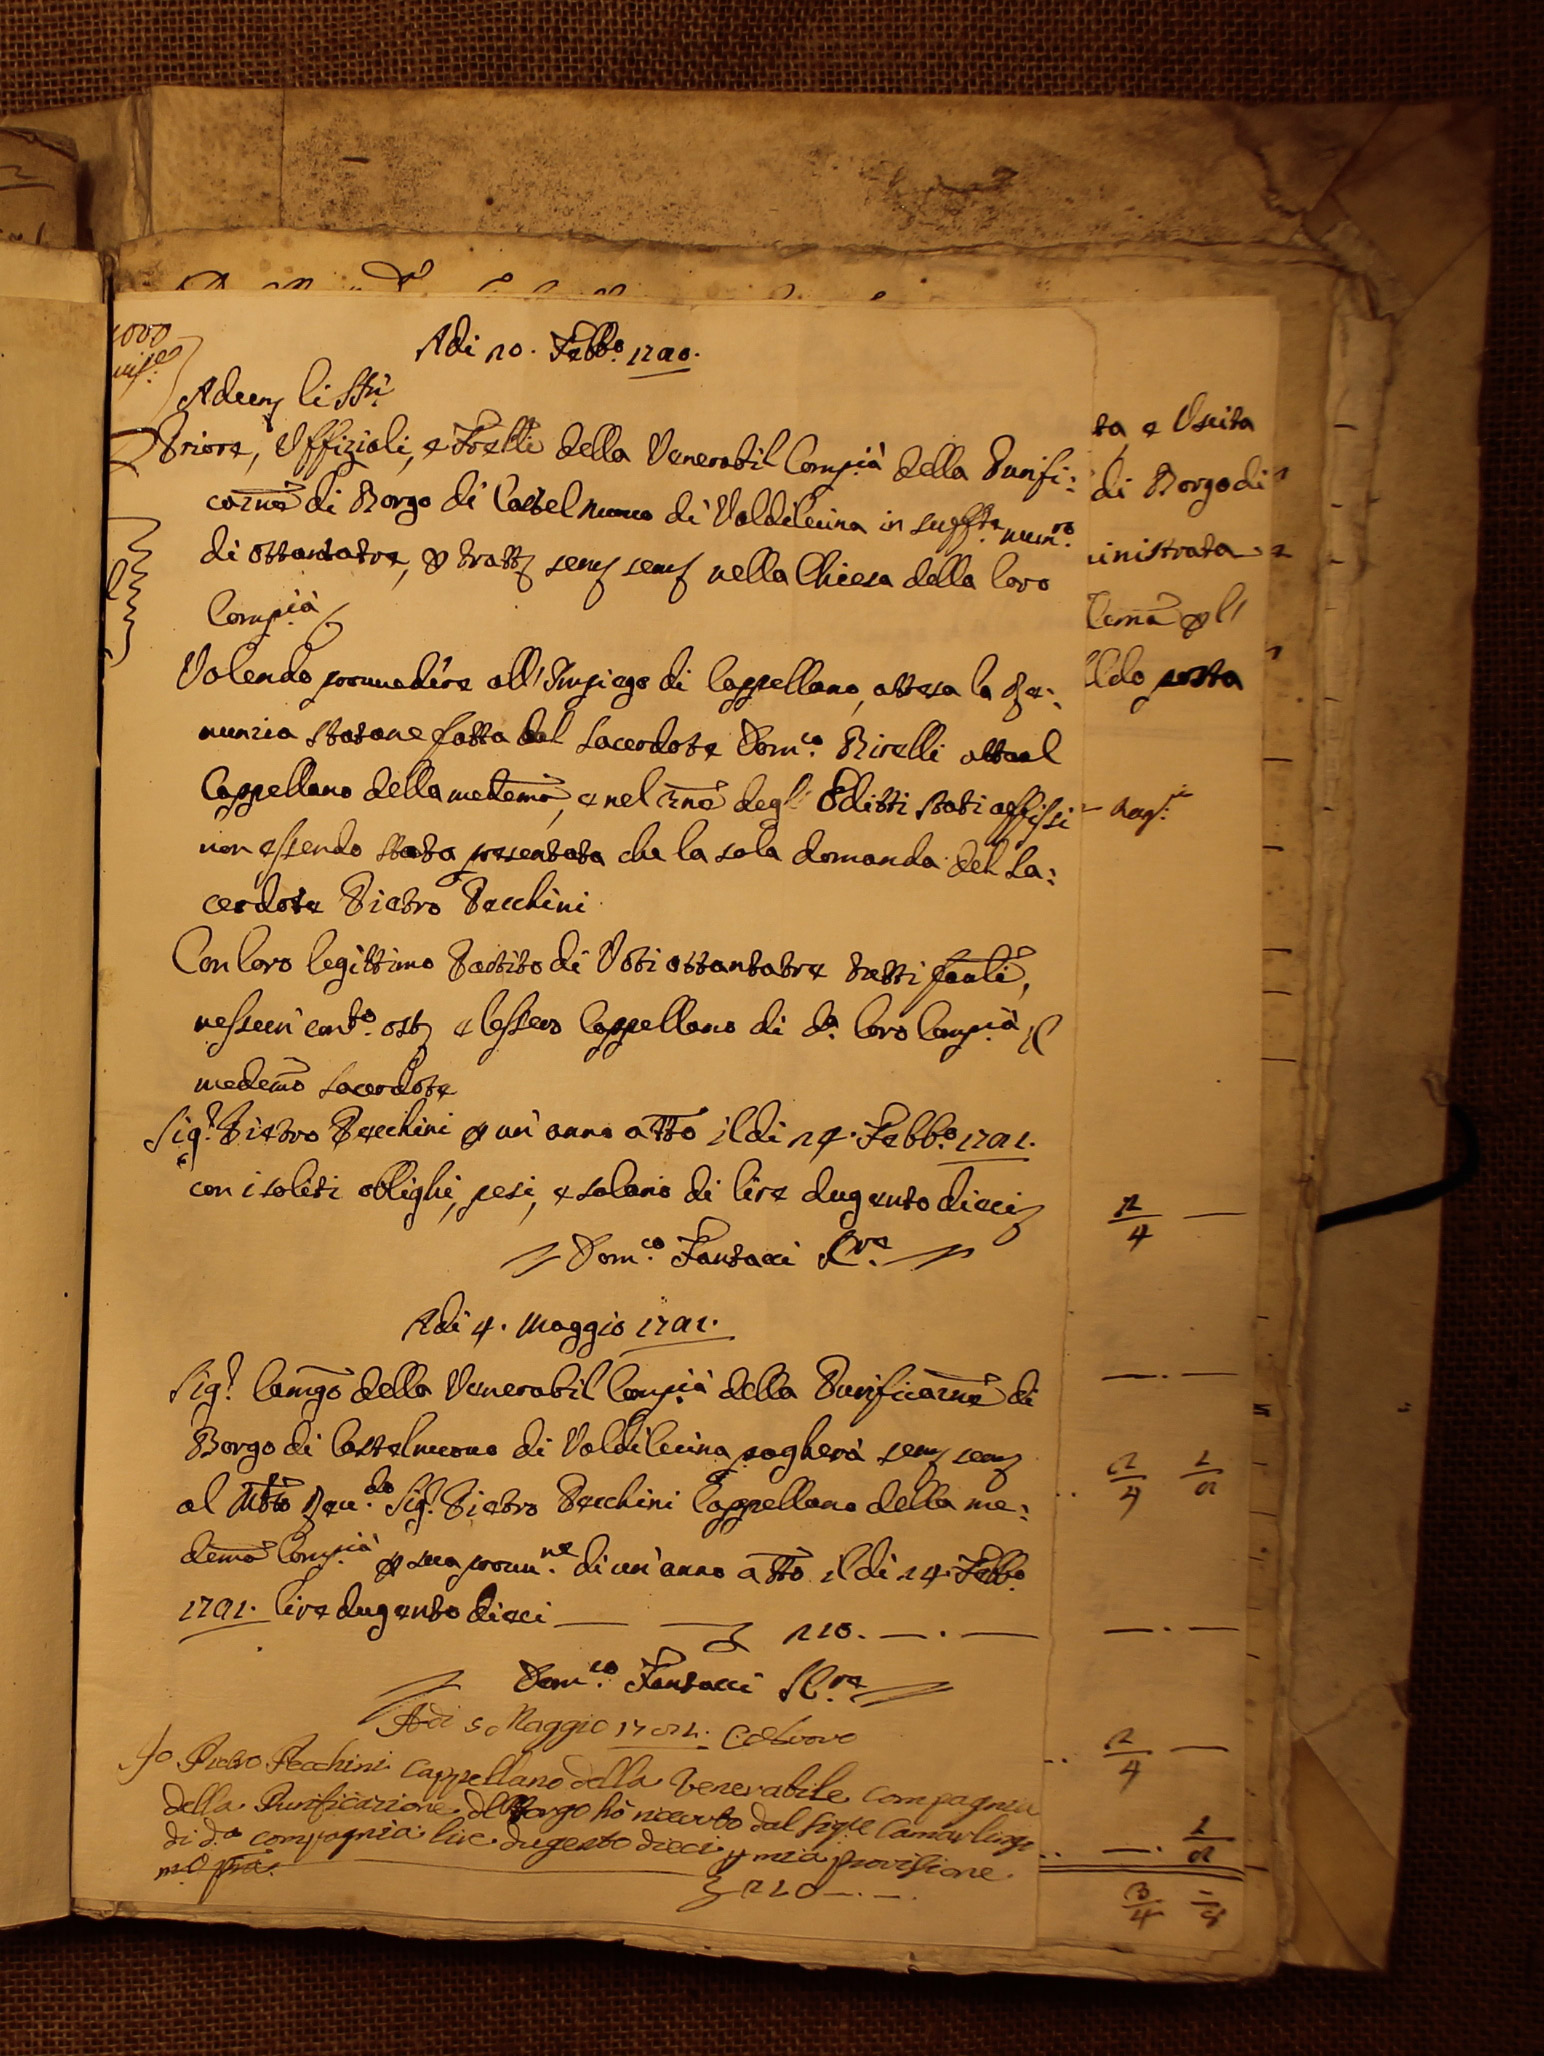 Adi 20. Febb.o 1790.
Adun.ti li SSri
Priore, Uffizioli, e Frelli della Venerabil Comp.ià della Purifi:
cazne di Borgo di Castelnuovo di Valdilecina in suffte num.ro
di ottantatre, p tratt semp semp nella Chiesa della loro
Comp.ià
Volendo provvedere all'Impiego di Cappellano, attesa la Re:
nunzia statane fatta dal Sacerdote Dom.co Birelli attual
Cappellano della medema, e nel zne degl'Editti stati affissi
non essendo stata presentata che la sola domanda del Sa:
cerdote Pietro Pecchini
Con loro legittimo Partito di Voti ottantatre tutti favli,
nessun' cont.o ost elessero Cappellano di d.a loro Comp.ià il
medemo Sacerdote
Sig.r Pietro Pecchini p un' anno atto il dì 14. Febb.o 1791.
con i soliti obblighi, pesi, e salario di lire dugento dieci
Dom.co Fantacci S.re
Adi 4. Maggio 1791.
Sig.r Camgo della Venerabil Comp.ià della Purificazne di
Borgo di Castelnuovo di Valdilecina pagherà semp semp
al Mto Reu.do Sig.r Pietro Pecchini Cappellano della me:
dema Comp.ià p sua provv.ne di un' anno atto il dì 14. Febb.o
1791. lire dugento dieci — — 210. — . —
Dom.co Fantacci S.re
Adi 5 Maggio 1791. C.delnovo
Io Pietro Pecchini Cappellano della Venerabile compagnia
della Purificazione del Borgo hò riceuto dal Sig.re Camarlingo
di d.a compagnia lire dugento dieci p mia provisione
m.o pia. — 210 — . —
ta e Uscita
di Borgo di
inistrata e
ldo posta